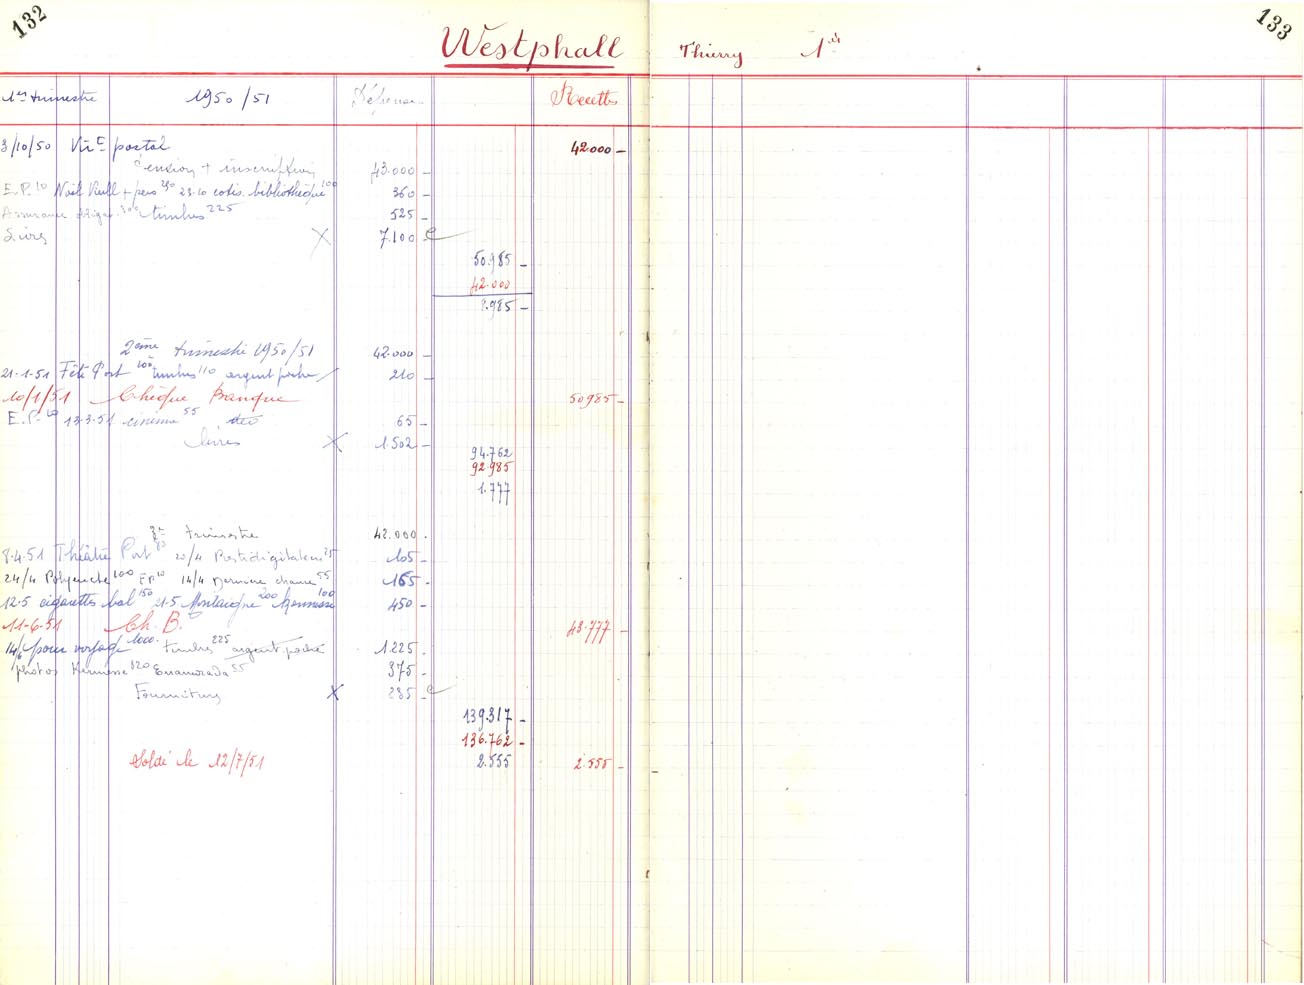 132
133
Westphall Thierry 1er
1er trimestre 1950/51 Dépenses Recettes
3/10/50 Virt postal 42.000 -
Pension + inscription 43.000 -
E.P. 10 Noël + pers 250 23.10 cotis. bibliothèque 100 360 -
Assurance obligat. 300 timbres 225 525 -
Livres X 7.100 -
50.985 -
42.000
8.985 -
2ème trimestre 1950/51 42.000 -
21-1-51 Fête Port 100 timbres 110 argent poche 210 -
10/1/51 Chèque Banque 50985 -
E.P. 10 13-3-51 cinema 55 65 -
livres X 1.502 -
94.762
92.985
1.777
3e trimestre 42.000 -
8-4-51 Théâtre Port 80 20/4 Prestidigitateur 25 105 -
24/4 Polyeucte 100 E.P. 10 14/4 Derniere chance 55 165 -
12-5 cigarettes bal 150 21-5 Montaigne 200 kermesse 100 450 -
11-6-51 Ch. B. 43.777 -
14/6 pour voyage 1000. timbres 225 argent poche 1.225 -
photos Kermesse 320 Enamorada 55 375 -
Fournitures X 285 -
139.317 -
136.762 -
Soldé le 12/7/51 2.555 2.555 -